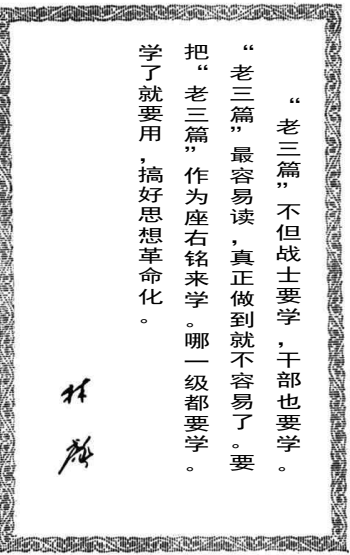 “老三篇”不但战士要学,干部也要学。
“老三篇”最容易读,真正做到就不容易了。要
把“老三篇”作为座右铭来学。哪一级都要学。
学了就要用,搞好思想革命化。
林彪